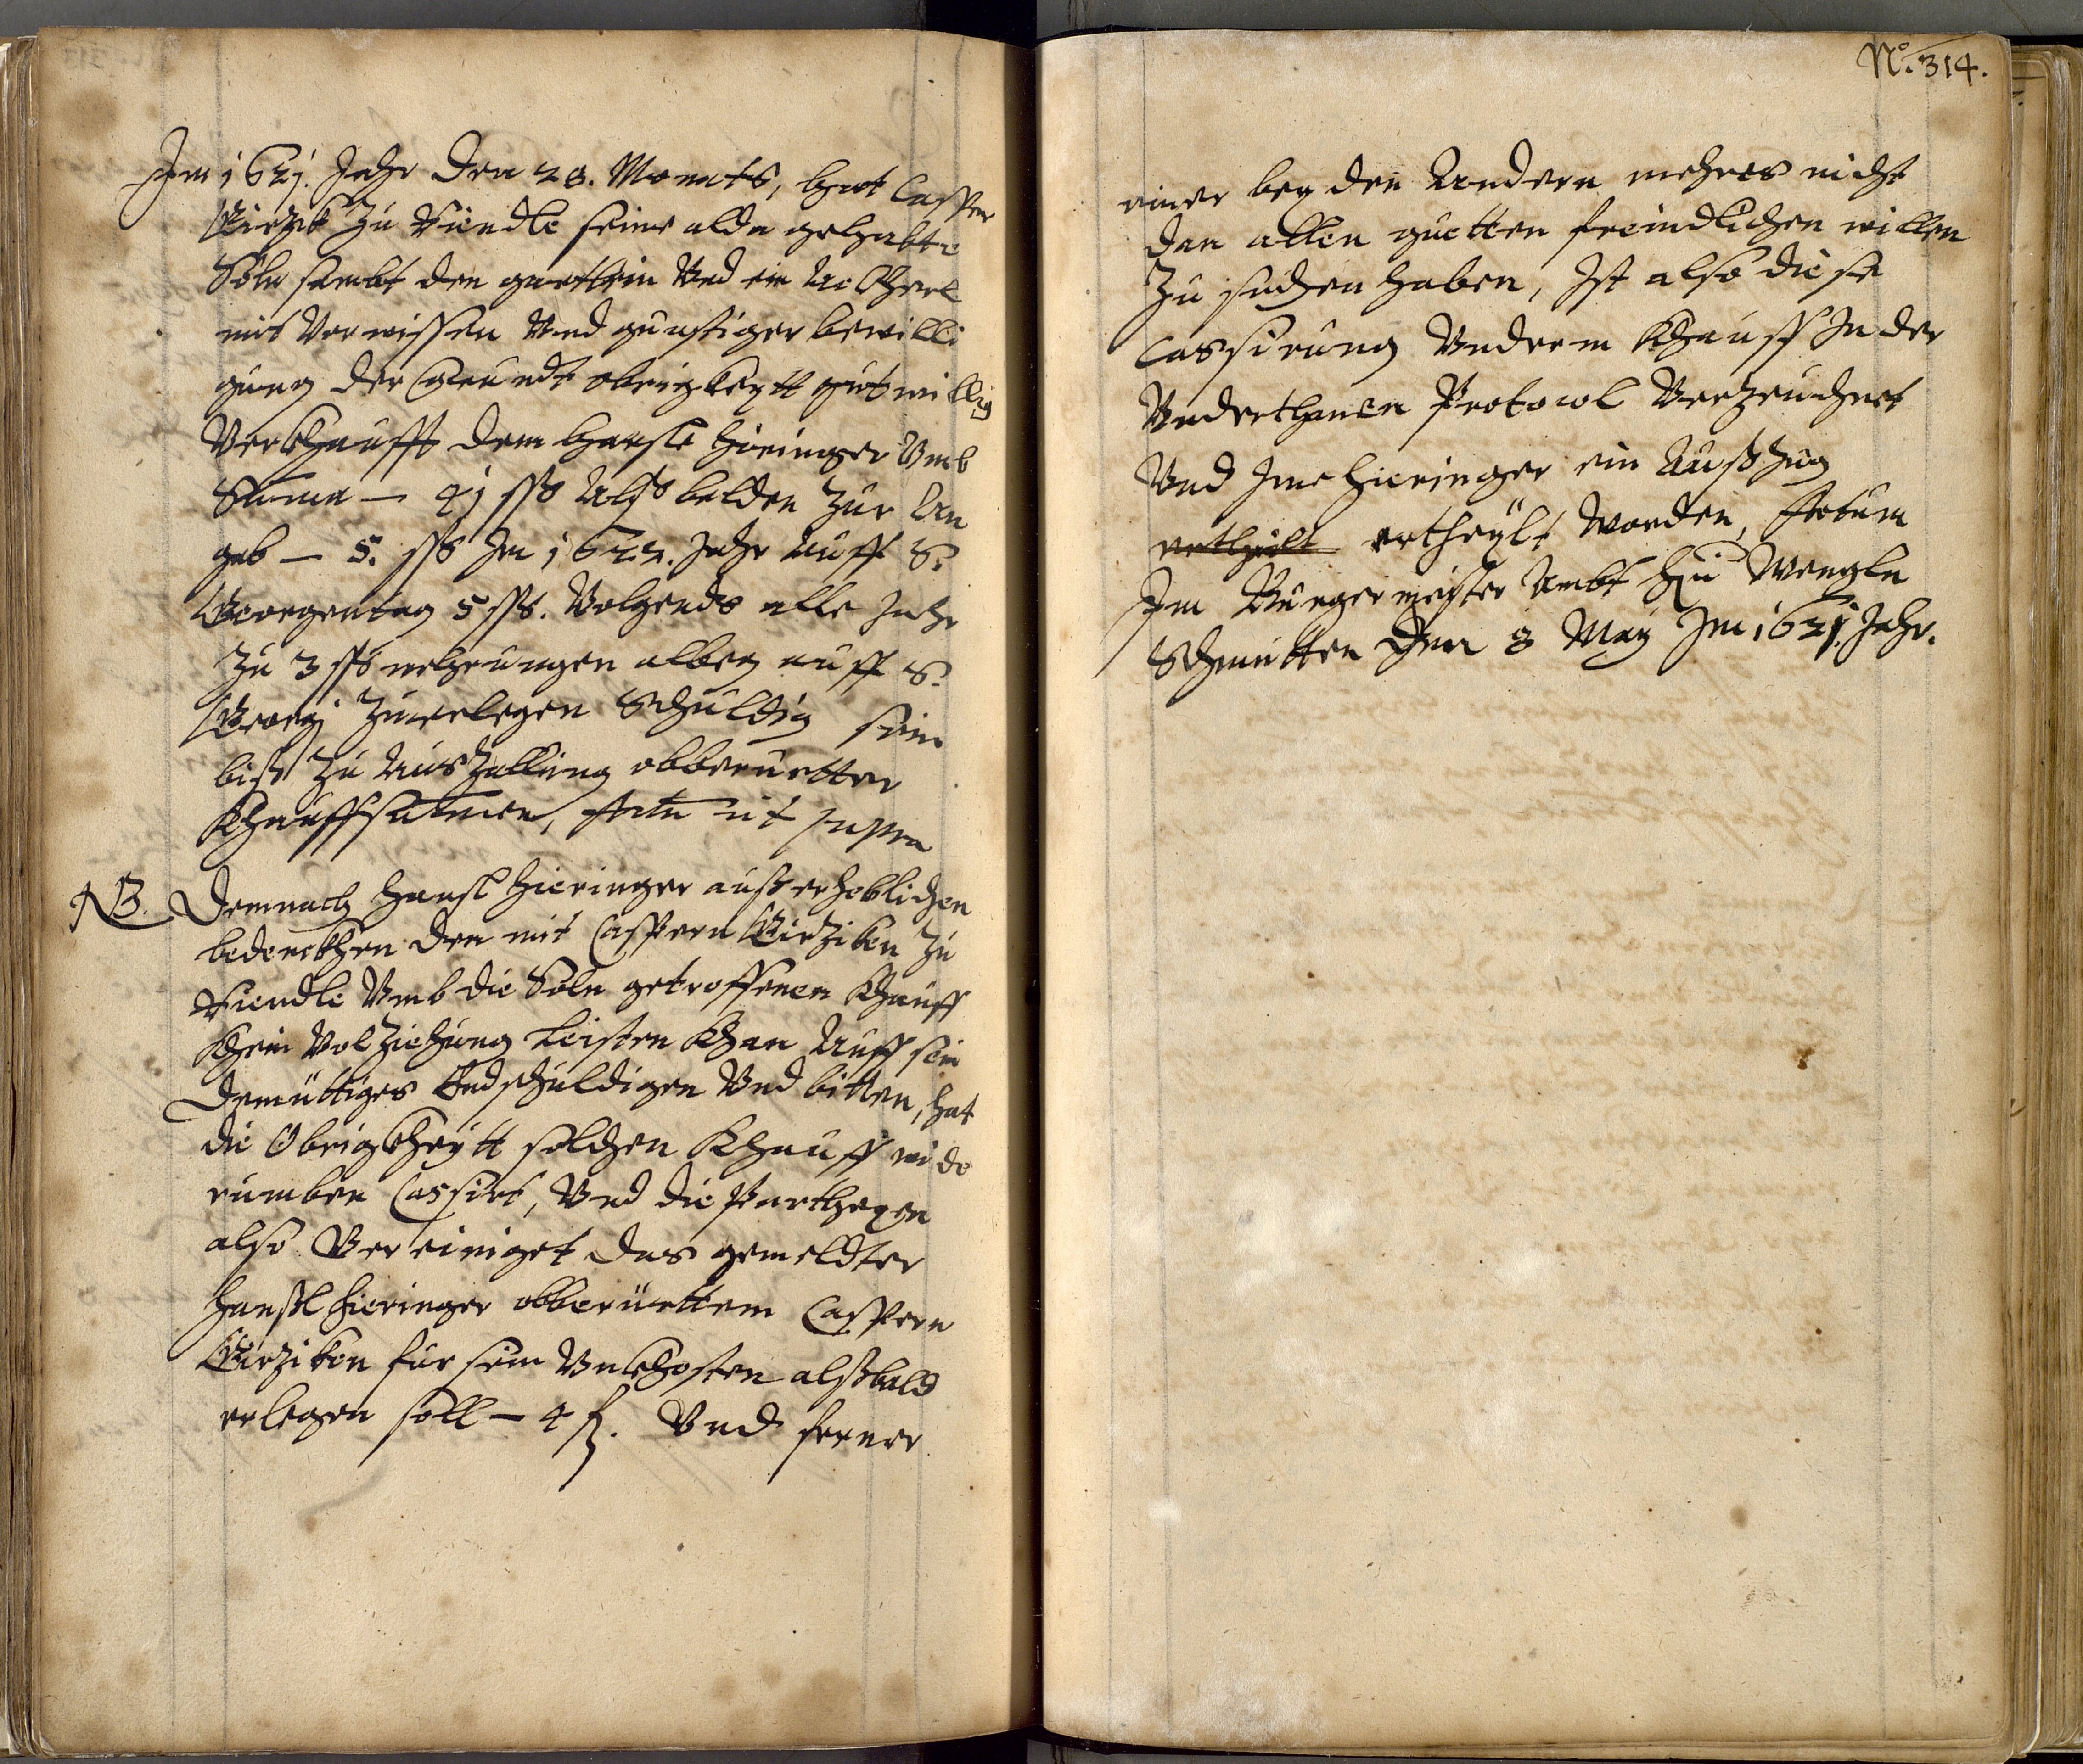 Im 1621. Jahr den 28. Monats, hat Casper
Girzik zu Riendle seine alda gehabte
Söln sambt den garttein Vnd ein Ackherl
mit Vorwissen Vnd gunstiger bewilli
gung der Grundt obrigkeytt gutwillig
Verkhaufft dem Hansl Hieringer Vmb
Suma — 41 ßß Alß balden zur An
gab — 5. ßß Im 1622. Jahr Auff S.
Georgentag 5 ßß. Volgends alle Jahr
zu 3 ßß albeg auff S.
Georgi zuerlegen Schuldig sein
biß zu Auszallung obberuertter
Khauffsumen, Actu ut supra
NB. Demnach Hansl Hieringer auß erheblichen
bedenckhen den mit Caspern Girziken zu
Riendle Vmb die Söln getroffenen Khauff
Khein Volziehung Leisten Khan Auff sein
Demüttiges Endschuldigen Vnd bitten, hat
die Obrigkheytt solchen Khauff wide
rumben Cassirt, Vnd die Partheyen
also Vereiniget das gemeldter
Hansl Hieringer obberüerttem Caspern
Girziken für sein Vnkhosten alßbald
erlegen soll — 4 f. Vnd ferner
No. 314.
einer bey den Andern mehres nicht
dan allen guetten freindlichen willen
zu suchen haben, Ist also diese
Cassirung Vnderm Khauff In der
Vnderthanen Protocol Verzeichnet
Vnd Ime Hieringer ein Außzug
ertheilt ertheylt worden, Actum
Im Burgermeister Ambt zu Wengln
Schmitten Den 8 May Im 1621. Jahr.